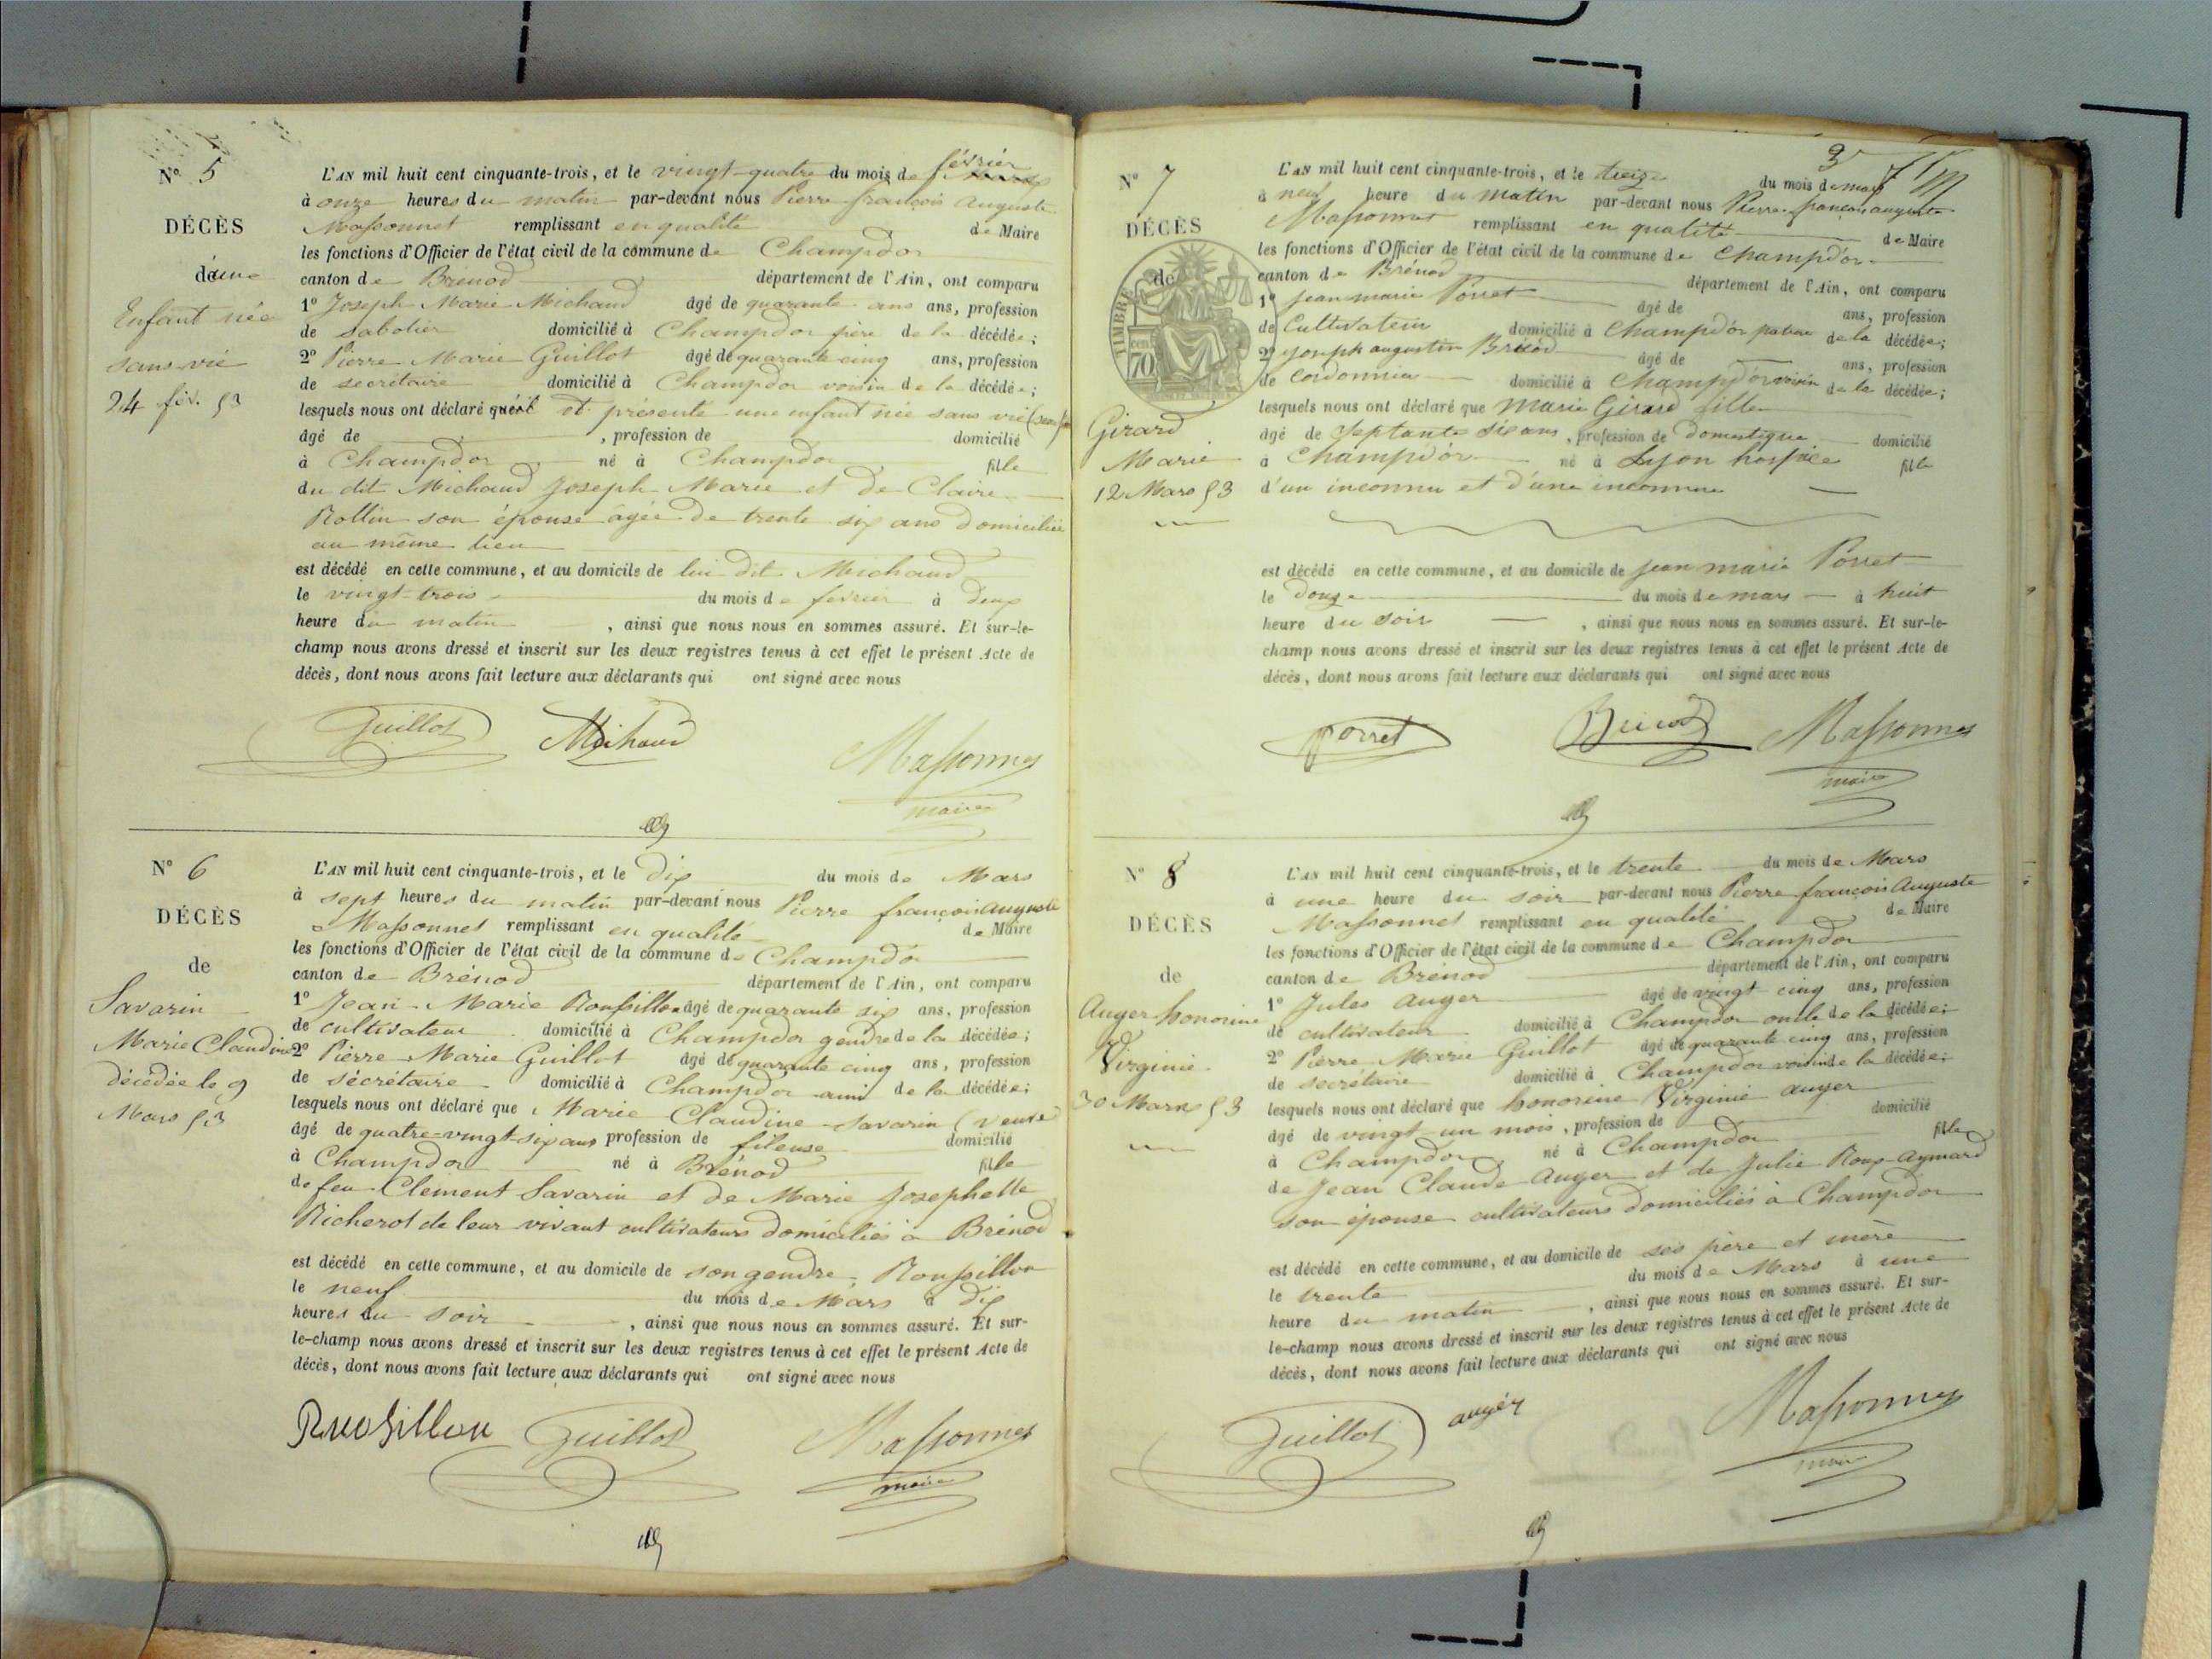 N° 5
DÉCÈS
d'une
Enfant née
sans vie
24 fév. 53
L'AN mil huit cent cinquante-trois, et le vingt-quatre du mois de février
à onze heures du matin par-devant nous Pierre françois Auguste
Massonnet remplissant en qualité de Maire
les fonctions d'Officier de l'état civil de la commune de Champdor
canton de Brénod département de l'Ain, ont comparu
1° Joseph Marie Michaud âgé de quarante ans ans, profession
de sabotier domicilié à Champdor père de la décédée;
2° Pierre Marie Guillot âgé de quarante cinq ans, profession
de secrétaire domicilié à Champdor voisin de la décédée;
lesquels nous ont déclaré et présenté une enfant née sans vie
âgé de , profession de domicilié
à Champdor né à Champdor fille
du dit Michaud Joseph Marie et de Claire
Rollin son épouse âgée de trente six ans domiciliée
au même lieu
est décédé en cette commune, et au domicile de lui dit Michaud
le vingt-trois du mois de février à deux
heure du matin , ainsi que nous nous en sommes assuré. Et sur-le-
champ nous avons dressé et inscrit sur les deux registres tenus à cet effet le présent Acte de
décès, dont nous avons fait lecture aux déclarants qui ont signé avec nous
Guillot Michaud Massonnet
maire
N° 6
DÉCÈS
de
Savarin
Marie Claudine
décédée le 9
Mars 53
L'AN mil huit cent cinquante-trois, et le dix du mois de Mars
à sept heures du matin par-devant nous Pierre françois Auguste
Massonnet remplissant en qualité de Maire
les fonctions d'Officier de l'état civil de la commune de Champdor
canton de Brénod département de l'Ain, ont comparu
1° Jean-Marie Roussillon âgé de quarante six ans, profession
de cultivateur domicilié à Champdor gendre de la décédée;
2° Pierre Marie Guillot âgé de quarante cinq ans, profession
de sécrétaire domicilié à Champdor ami de la décédée;
lesquels nous ont déclaré que Marie Claudine Savarin (veuve
âgé de quatre-vingt-six ans profession de fileuse domicilié
à Champdor né à Brénod fille
de feu Clement Savarin et de Marie Josephette
Richerot de leur vivant cultivateurs domiciliés à Brénod
est décédé en cette commune, et au domicile de son gendre Roussillon
le neuf du mois de Mars à dix
heures du soir , ainsi que nous nous en sommes assuré. Et sur-
le-champ nous avons dressé et inscrit sur les deux registres tenus à cet effet le présent Acte de
décès, dont nous avons fait lecture aux déclarants qui ont signé avec nous
Guillot Massonnet
maire
3
N° 7
DÉCÈS
de
TIMBRE
70
Girard
Marie
12 Mars 53
L'AN mil huit cent cinquante-trois, et le treize du mois de mars
à neuf heure du matin par-devant nous Pierre-françois auguste
Massonnet remplissant en qualité de Maire
les fonctions d'Officier de l'état civil de la commune de Champdor
canton de Brénod département de l'Ain, ont comparu
1° jean marie Porret âgé de ans, profession
de Cultivateur domicilié à Champdor de la décédée;
2° joseph augustin Brisod âgé de ans, profession
de Cordonnier domicilié à Champdor voisin de la décédée;
lesquels nous ont déclaré que Marie Girard fille
âgé de Septante six ans, profession de Domestique domicilié
à Champdor né à Lyon hospice fille
d'un inconnu et d'une inconnue
est décédé en cette commune, et au domicile de jean marie Porret
le Douze du mois de mars à huit
heure du soir , ainsi que nous nous en sommes assuré. Et sur-le-
champ nous avons dressé et inscrit sur les deux registres tenus à cet effet le présent Acte de
décès, dont nous avons fait lecture aux déclarants qui ont signé avec nous
porret Massonnet
maire
N° 8
DÉCÈS
de
Auger honorine
Virginie
30 Mars 53
L'AN mil huit cent cinquante-trois, et le trente du mois de Mars
à une heure du soir par-devant nous Pierre françois Auguste
Massonnet remplissant en qualité de Maire
les fonctions d'Officier de l'état civil de la commune de Champdor
canton de Brénod département de l'Ain, ont comparu
1° Jules Auger âgé de vingt cinq ans, profession
de cultivateur domicilié à Champdor oncle de la décédée;
2° Pierre Marie Guillot âgé de quarante cinq ans, profession
de secrétaire domicilié à Champdor voisin de la décédée;
lesquels nous ont déclaré que honorine Virginie auger
âgé de vingt-un mois, profession de domicilié
à Champdor né à Champdor fille
de Jean Claude Auger et de Julie Roux-Aymard
son épouse cultivateurs domiciliés à Champdor
est décédé en cette commune, et au domicile de ses père et mère
le trente du mois de Mars à une
heure du matin , ainsi que nous nous en sommes assuré. Et sur-
le-champ nous avons dressé et inscrit sur les deux registres tenus à cet effet le présent Acte de
décès, dont nous avons fait lecture aux déclarants qui ont signé avec nous
Guillot auger Massonnet
maire